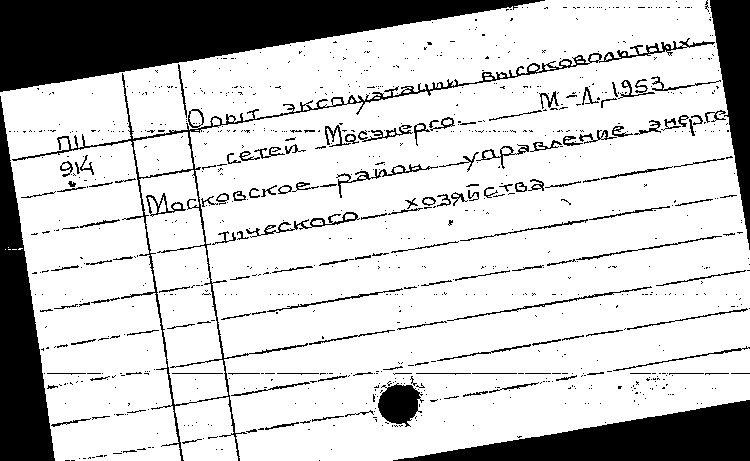 Опыт эксплуатации высоковольтных
П11
914
сетей Мосэнерго. М.-Л., 1953
Московское район. управление энерге
тического хозяйства